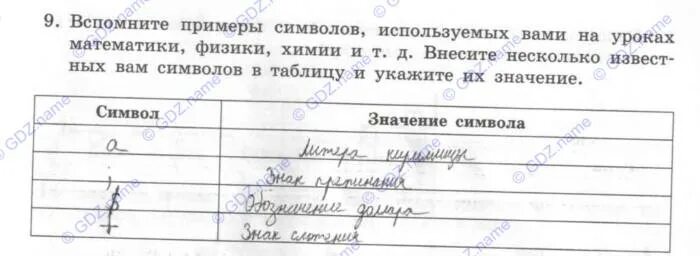 9. Вспомните примеры символов, используемых вами на уроках
математики, физики, химии и т. д. Внесите несколько извест-
ных вам символов в таблицу и укажите их значение.
Символ Значение символа
а Литера кириллицы
; Знак препинания
$ Обозначение доллара
+ Знак сложения
© GDZ.name